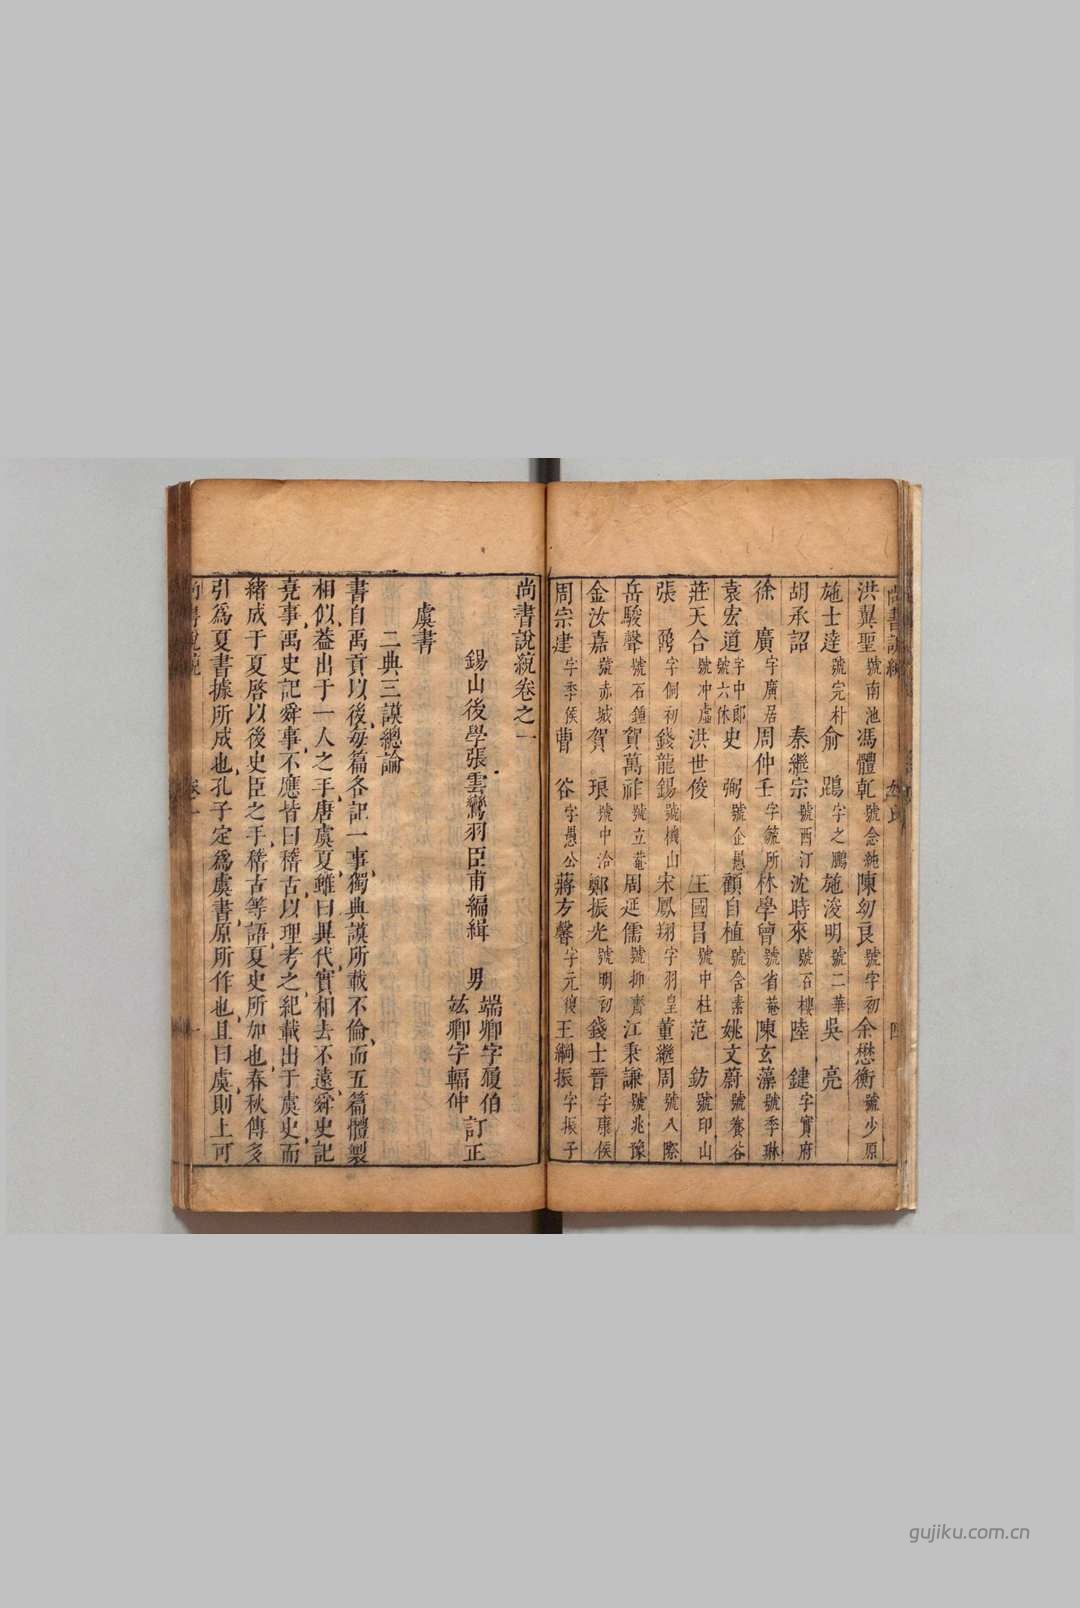 尚書說統 姓氏 四
洪翼聖號南池 馮體乾號念絁 陳幼良號字初 余懋衡號少原
施士達號完村 俞鵾字之鵬 施浚明號二華 吳亮
胡承詔 秦繼宗號西汀 沈時來號石樓 陸鍵字實府
徐廣字廣居 周仲壬字毓所 林學曾號省菴 陳玄藻號季琳
袁宏道字中郎號六休 史弼號企愚 顧自植號含素 姚文蔚號養谷
莊天合號冲虛 洪世俊 王國昌號中柱 范鈁號印山
張鼐字侗初 錢龍錫號機山 宋鳳翔字羽皇 董繼周號八際
岳駿聲號石鍾 賀萬祚號立菴 周延儒號抑齋 江秉謙號兆豫
金汝嘉號赤城 賀琅號中洽 鄭振光號明初 錢士晉字康侯
周宗建字季侯 曹谷字愚公 蔣方馨字元復 王綱振字振子
尚書說統卷之一
錫山後學張雲鸞羽臣甫編緝 男 端卿字履伯 竑卿字輻仲 訂正
虞書
二典三謨總論
書自禹貢以後每篇各記一事獨典謨所載不倫而五篇體製
相似葢出于一人之手唐虞夏雖曰異代實相去不遠舜史記
堯事禹史記舜事不應皆曰稽古以理考之紀載出于虞史而
緒成于夏啓以後史臣之手稽古等語夏史所加也春秋傳多
引爲夏書據所成也孔子定爲虞書原所作也且曰虞則上可
尚書說統 卷一 一
gujiku.com.cn